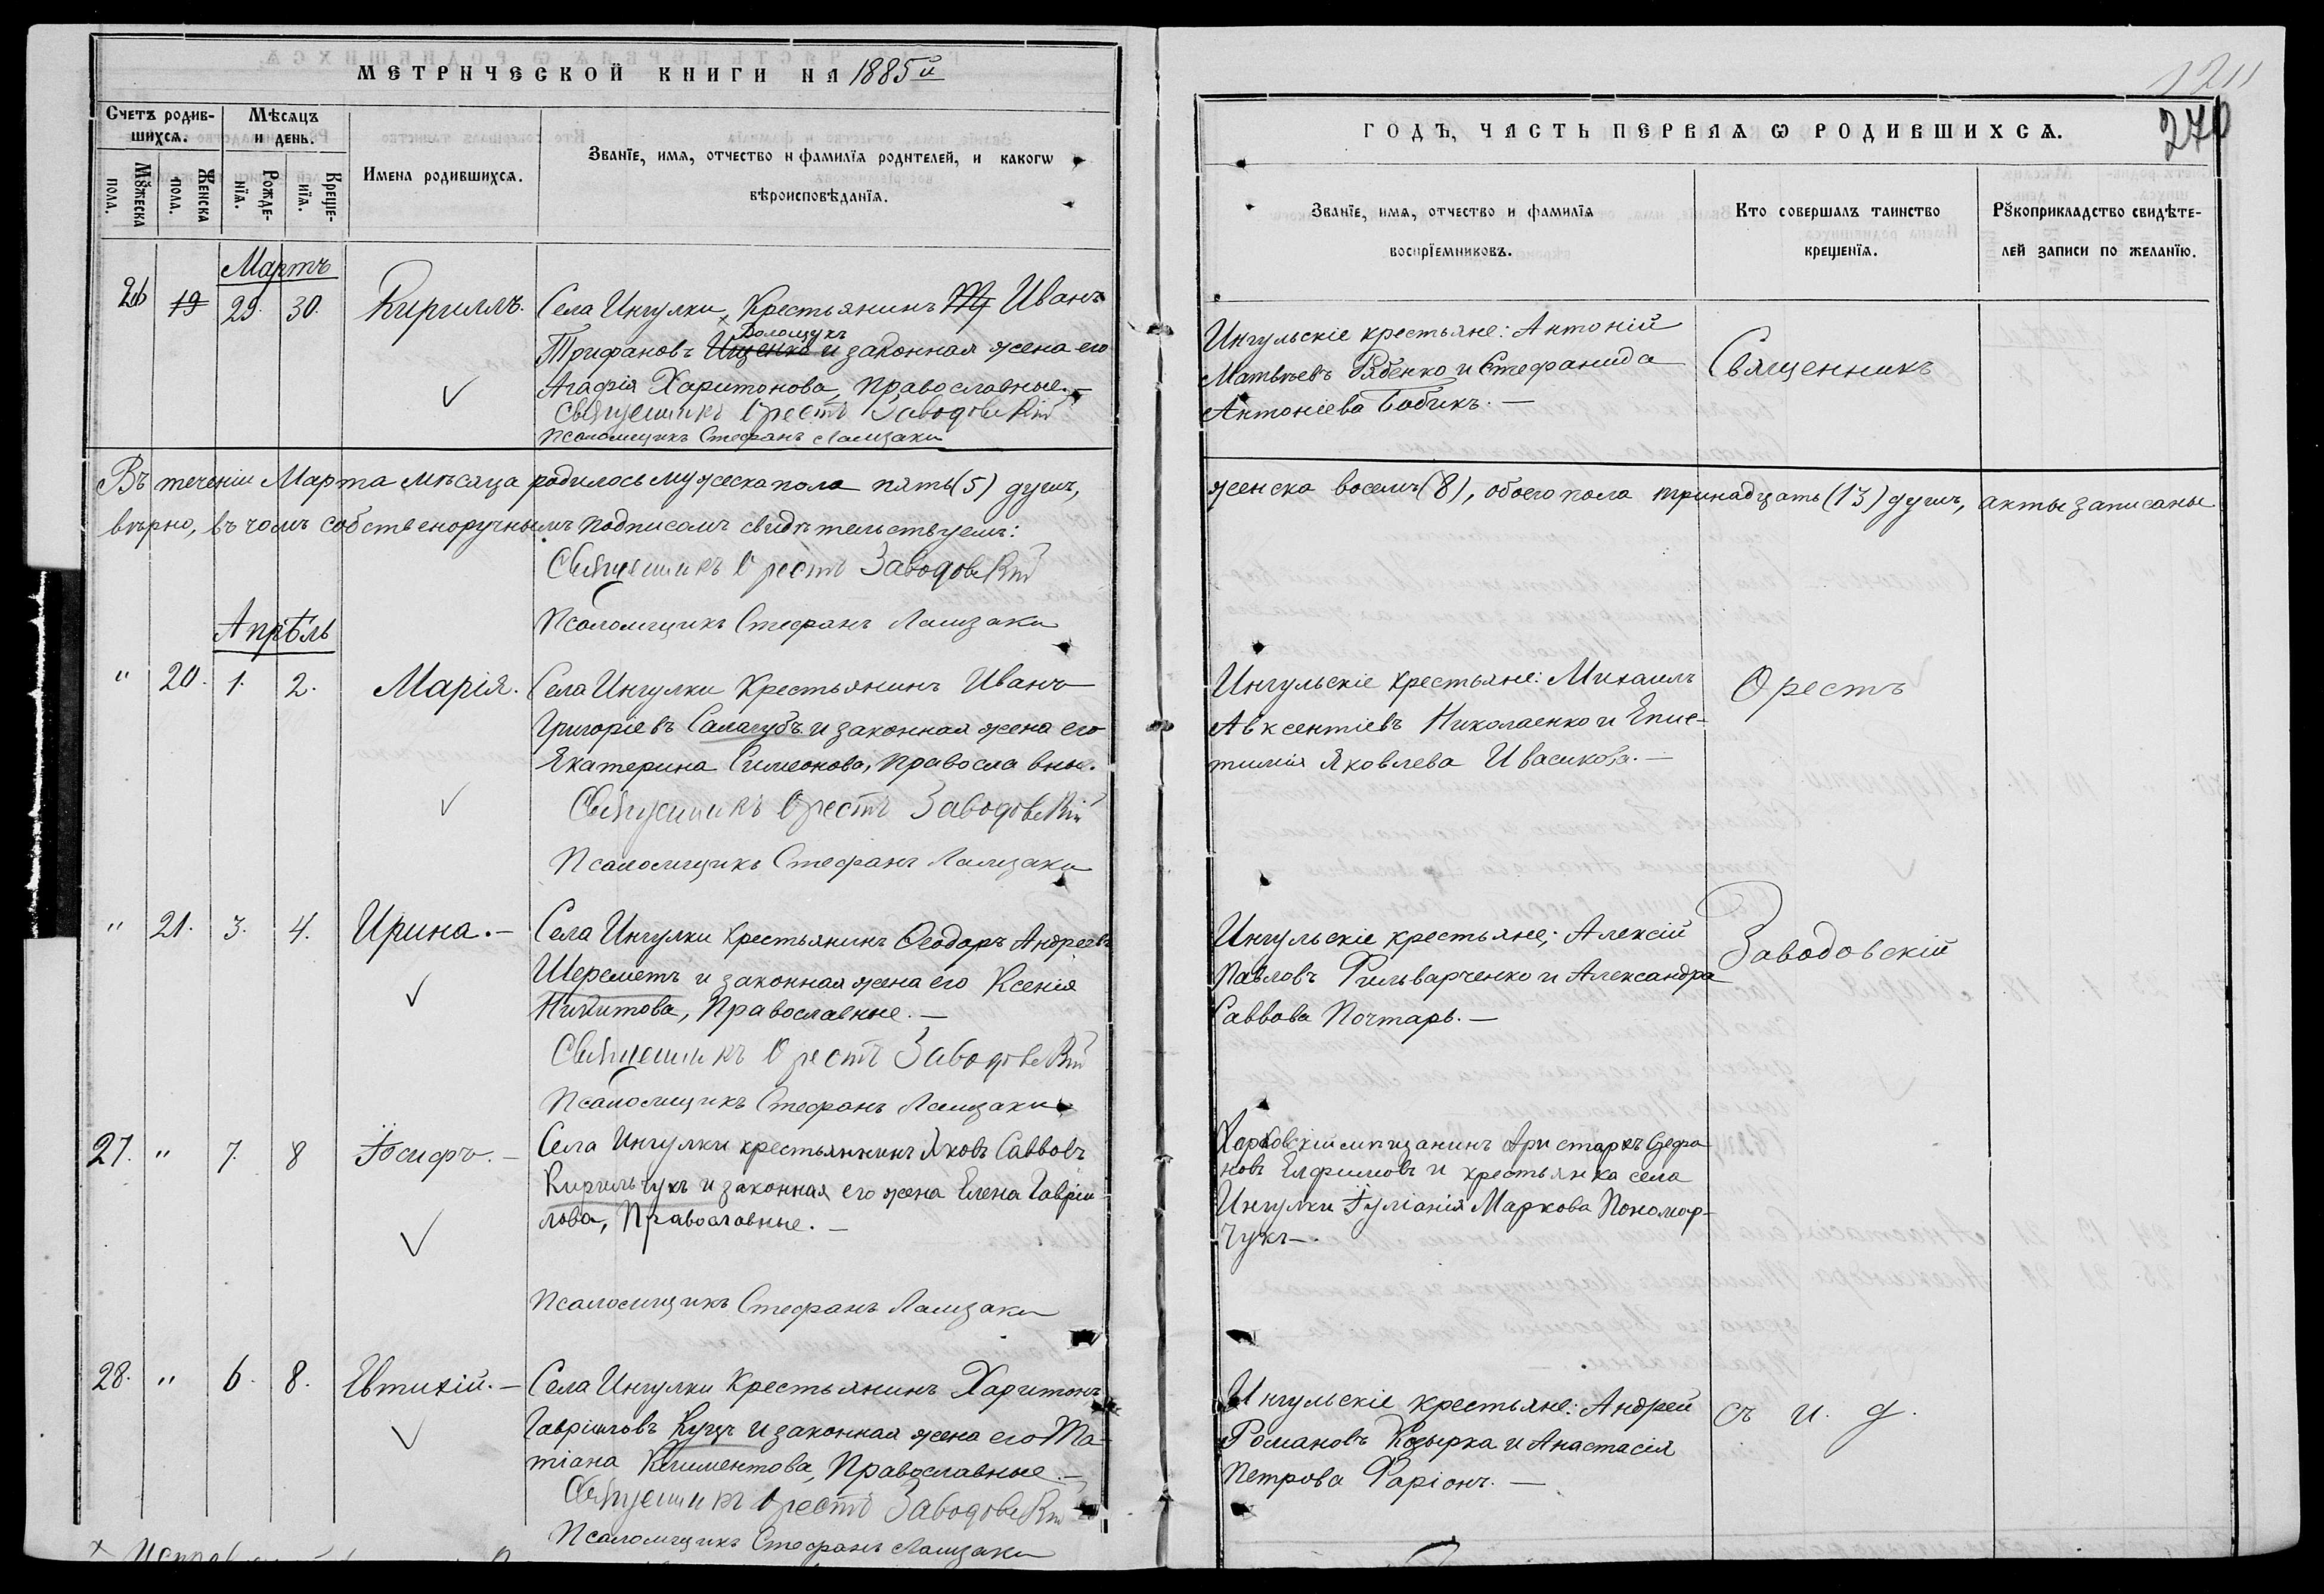 МЕТРИЧЕСКОЙ КНИГИ НА 1885й
Счетъ родив-
шихся.
Мѣсяцъ
и день.
Мꙋжеска
пола.
Женска
пола.
Рожде-
нїя.
Креще-
нїя.
Имена родившихся.
Званїе, имя, отчество и фамилїя родителей, и какогѡ
вѣроисповѣданїя.
Мартъ
26 19 29. 30. Кириллъ.
Села Ингулки Крестьянинъ Иванъ
Волощукъ
Трифановъ Ищенко и законная жена его
Агафія Харитонова, православные.-
Священникъ Орестъ Заводовскій
Псаломщикъ Стефанъ Ламзаки
Въ теченіи Марта мѣсяца родилось мужеска пола пять (5) душъ,
вѣрно, въ чомъ собственоручнымъ подписомъ свидѣтельствуемъ:
Священникъ Орестъ Заводовскій
Псаломщикъ Стефанъ Ламзаки
Апрѣль
" 20. 1. 2. Марія.
Села Ингулки Крестьянинъ Иванъ
Григоріевъ Салагубъ и законная жена его
Екатерина Симеонова, православные.
Священникъ Орестъ Заводовскій
Псаломщикъ Стефанъ Ламзаки
" 21. 3. 4. Ирина.-
Села Ингулки Крестьянинъ Ѳеодоръ Андреевъ
Шереметъ и законная жена его Ксенія
Никитова, Православные.-
Священникъ Орестъ Заводовскій
Псаломщикъ Стефанъ Ламзаки
27. " 7. 8 Іосифъ.-
Села Ингулки крестьянинъ Яковъ Саввовъ
Кирильчукъ и законная его жена Елена Гавріи-
лова, Православные.-
Псаломщикъ Стефанъ Ламзаки
28. " 6. 8. Евтихій.-
Села Ингулки Крестьянинъ Харитонъ
Гавріиловъ Куцъ и законная жена его Та-
тіана Климентова, Православные.-
Священникъ Орестъ Заводовскій
Псаломщикъ Стефанъ Ламзаки
270
ГОДЪ, ЧАСТЬ ПЕРВАЯ Ѡ РОДИВШИХСЯ.
Званїе, имя, отчество и фамилїя
воспрїемниковъ.
Кто совершалъ таинство
крещенїя.
Рꙋкоприкладство свидѣте-
лей записи по желанїю.
Ингульскіе крестьяне: Антоній
Матвѣевъ Рябенко и Стефанида
Антоніева Бабикъ.-
Священникъ
женска восемъ (8), обоего пола тринадцать (13) душъ, акты записаны
Ингульскіе крестьяне: Михаилъ
Авксентіевъ Николаенко и Епис-
тимія Яковлева Ивасикова.-
Орестъ
Ингульскіе крестьяне; Алексій
Павловъ Фильварченко и Александра
Саввова Почтарь.-
Заводовскій
Харьковскій мѣщанинъ Аристархъ Стефа-
новъ Елфимовъ и крестьянка села
Ингулки Іуліанія Маркова Пономар-
чукъ-.
Ингульскіе крестьяне: Андрей
Романовъ Козырка и Анастасія
Петрова Фаріонъ.-
съ и. д.